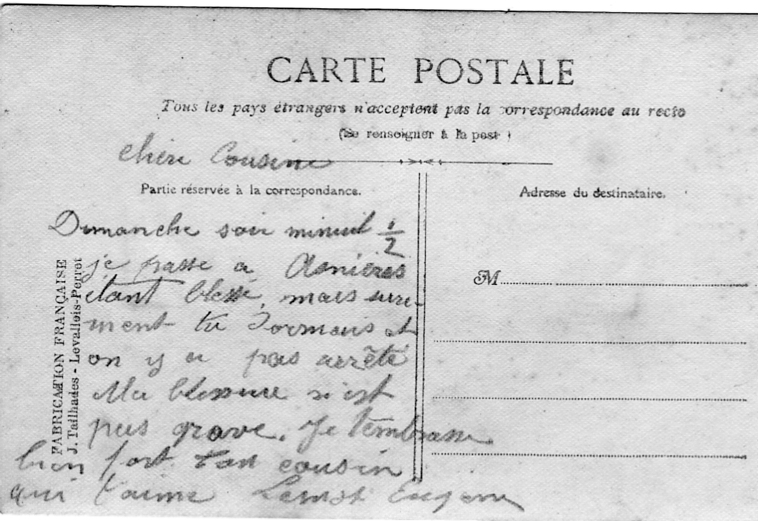 CARTE POSTALE
Tous les pays étrangers n'acceptent pas la correspondance au recto
(Se renseigner à la poste)
chère Cousine
Partie réservée à la correspondance.
Adresse du destinataire.
Dimanche soir minuit 1/2
je passe a Asnières
etant blessé, mais sure-
ment tu dormais et
on y a pas arrêté
Ma blessure n'est
pas grave. Je t'embrasse
bien fort ton cousin
qui t'aime Eugene
M
FABRICATION FRANÇAISE
J. Tailhades - Levallois-Perret